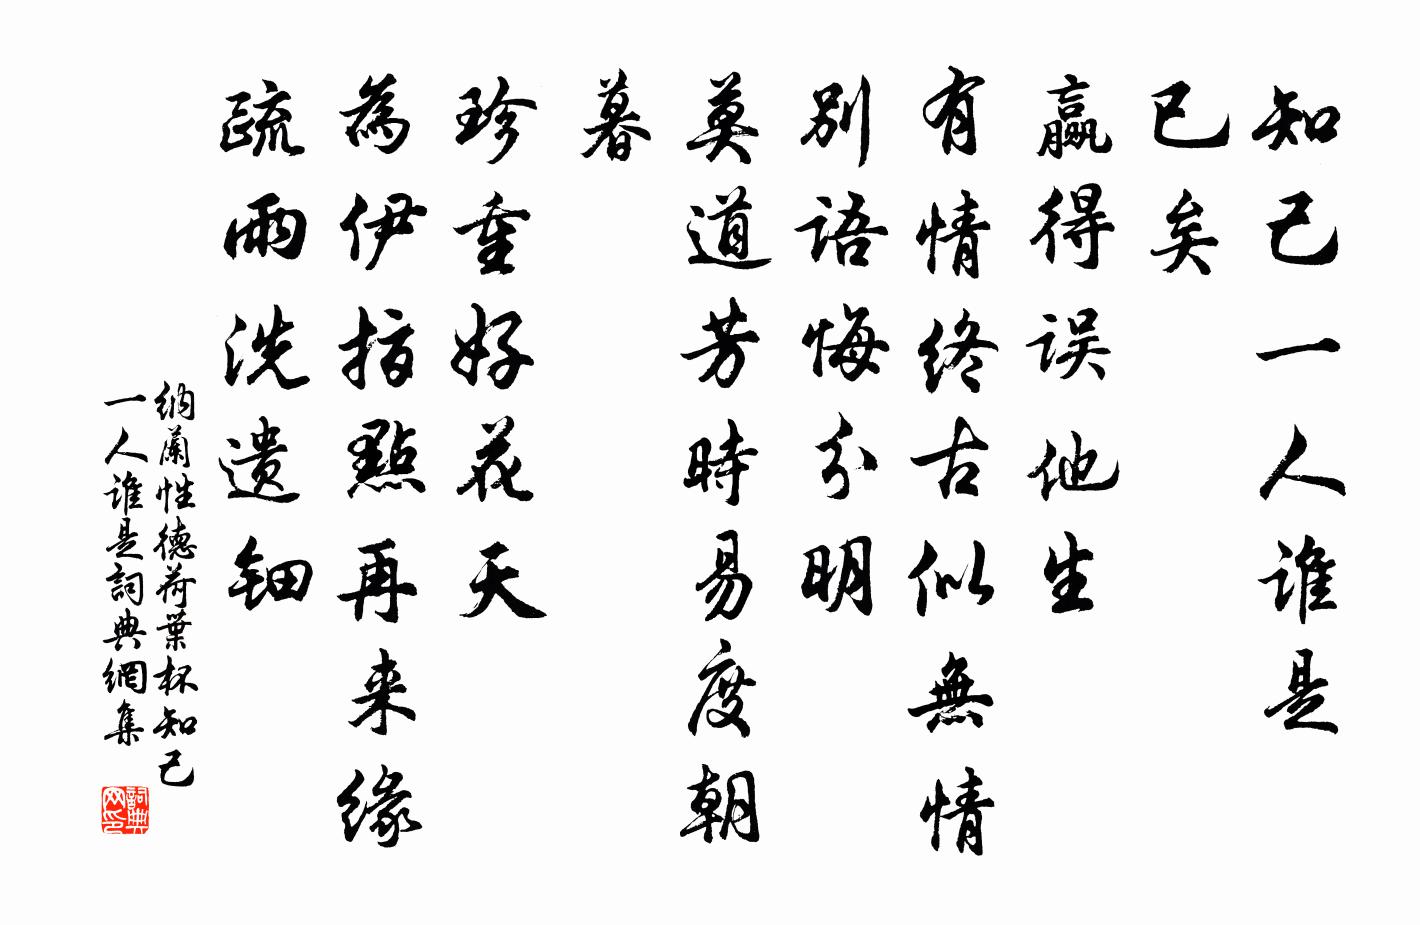 知己一人谁是
已矣
赢得误他生
有情终古似無情
别語悔分明
莫道芳時易度朝
暮
珍重好花天
為伊指點再来缘
疏雨洗遗钿
纳蘭性德荷葉杯知己
一人谁是詞典網集
詞典网印